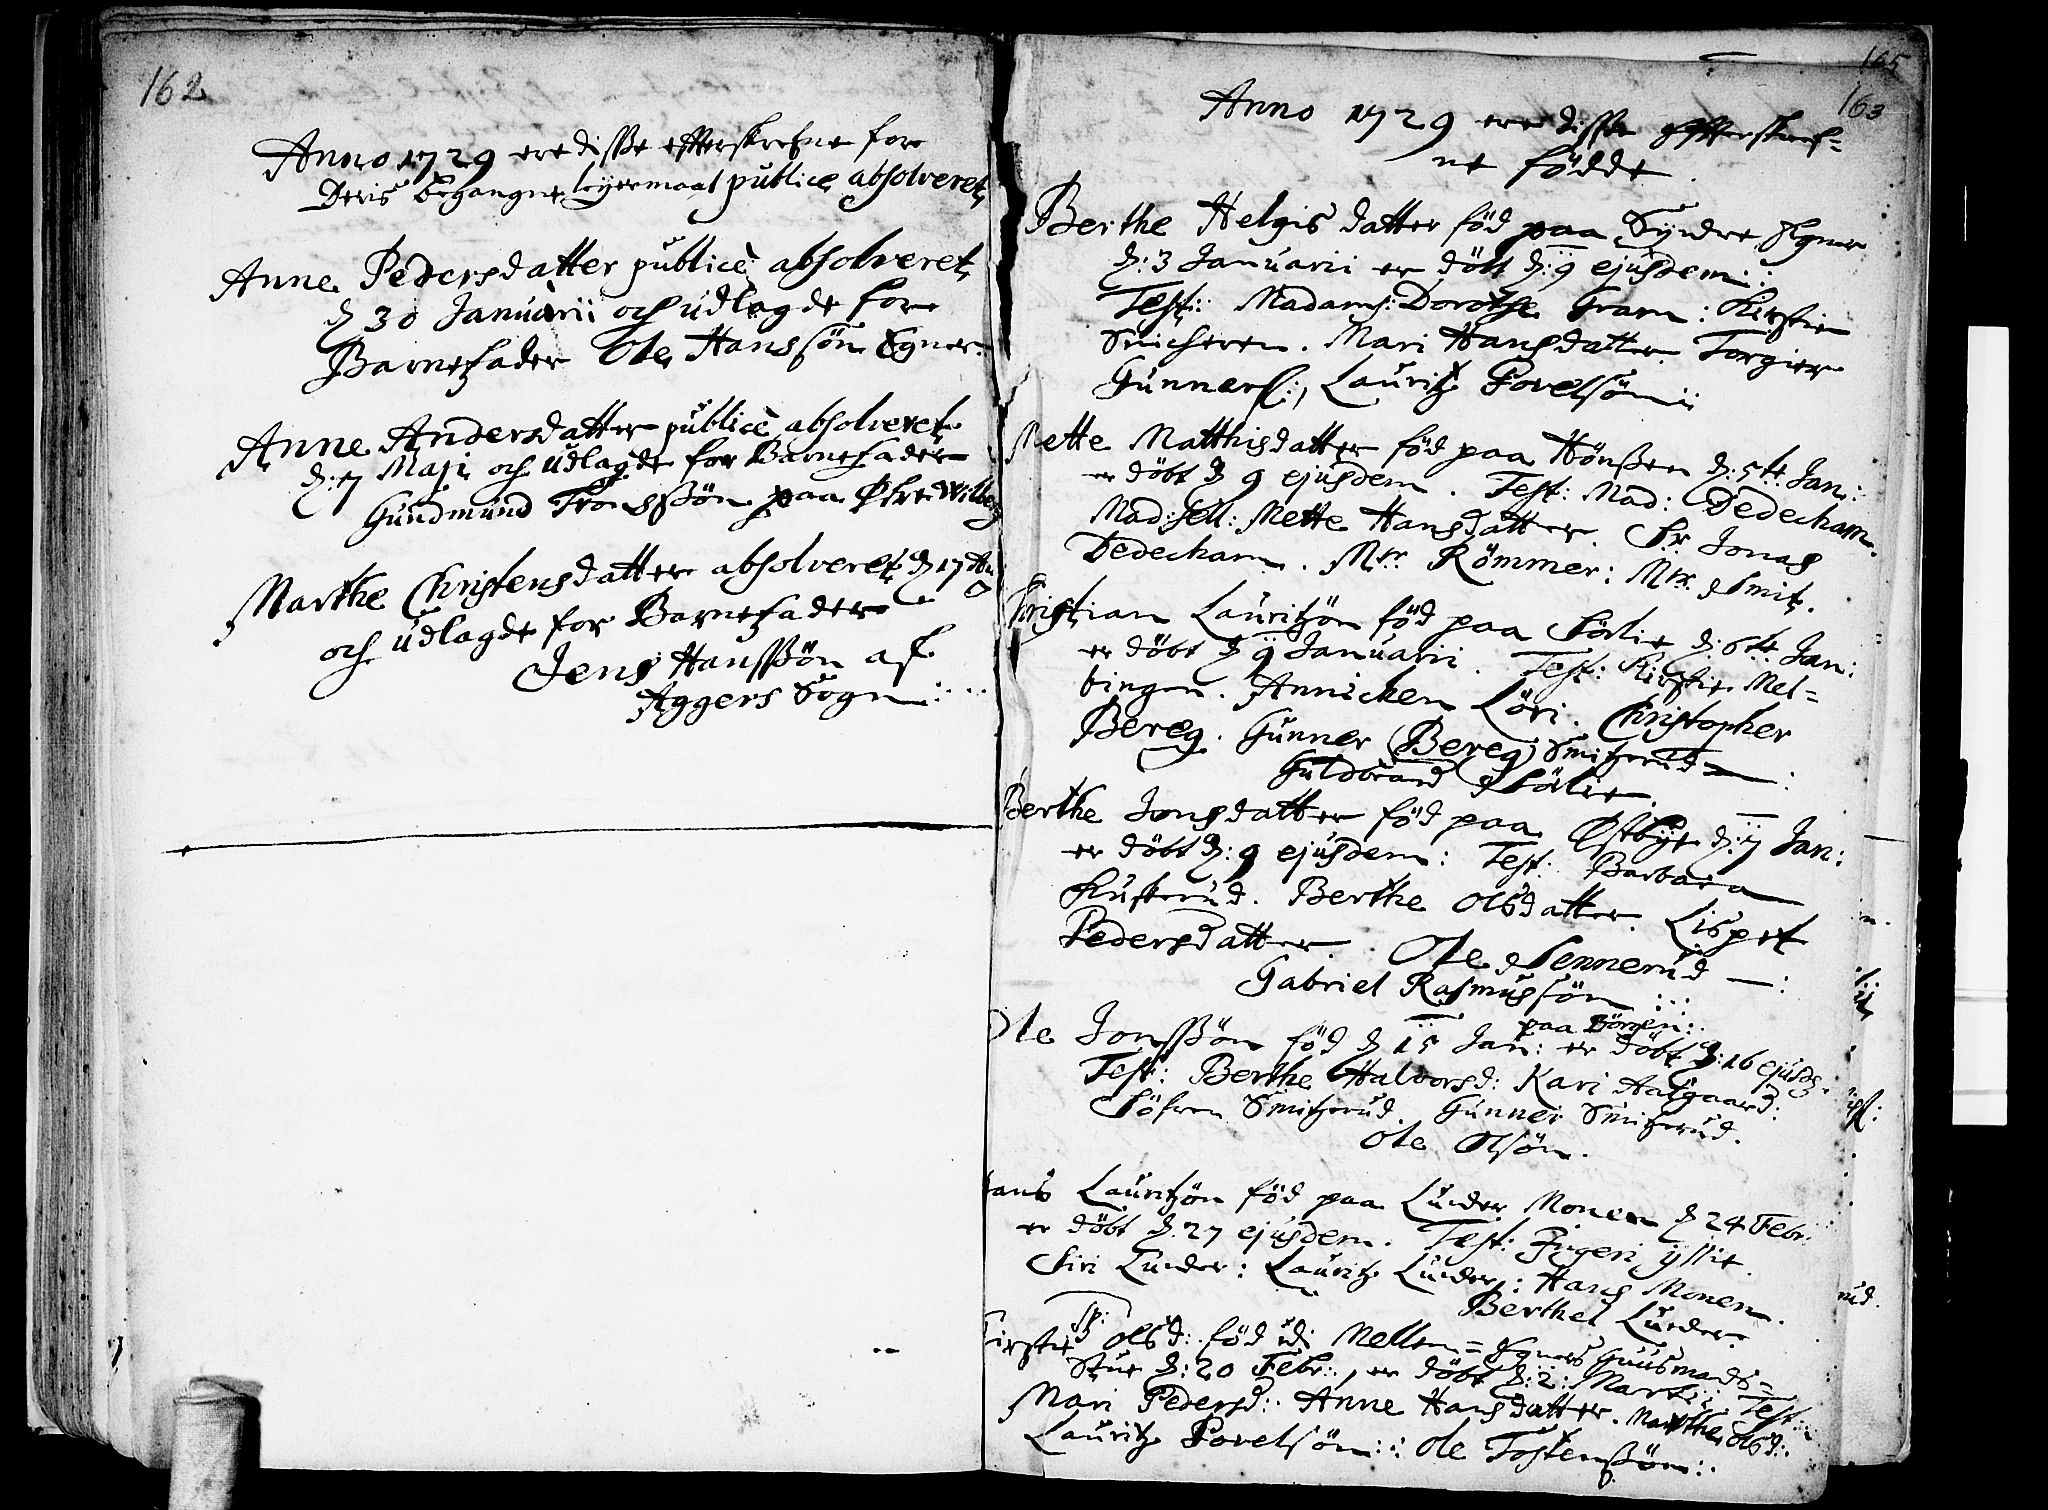 162
Anno 1729 ere disse effterskrefne for
Deris begangne leyermaal publice absolveret,
Anne Pedersdatter publicè absolveret
d 30 Januarii och udlagde for
Barnefader Ole Hanssön Egner.
Anne Andersdatter publicè absolveret
d: 7 Maji och udlagde for Barnefader
Gundmund Tronssön paa Østre Wilberg
Marthe Christensdatter absolveret d 17
och udlagde for Barnefader
Jens Hanssön af
Aggers Sogn:...
165
163
Anno 1729 ere disse effterskref=
ne födde
Berthe Helgisdatter föd paa Syndre Egner
d: 3 Januarii er döbt d: 9 ejusdem:
Test: Madams: Dorothe Gram: Kirstie
Snicheren. Mari Hansdatter Torgier
Gunners:, Lauritz Povelsön:
Mette Matthisdatter föd paa Hönssen d: 5te Jan:
er döbt d 9 ejusdem. Test: Mad: Dedecham.
Mad:sell: Mette Hansdatter. Sr. Jonas
Dedecham. Mr. Römmer: Mr. Smit.
Christian Lauritzön föd paa Sörlie d: 6te Jan:
er döbt d 9 Januarii. Test: Kirstie Mel=
bingen. Annichen Löri. Christopher
Bereg. Gunner (Bereg) Smitzerud:
Guldbrand Sörlie.
Berthe Jonsdatter föd paa Østbye d: 7 Jan:
er döbt d: 9 ejusdem: Test: Barbara
Husserud. Berthe Olsdatter. Lispet
Pedersdatter. Ole Sennerud —:
Gabriel Rasmussön:
paa Börsen:
Ole Jonssön föd d 15 Jan: er döbt d: 16 ejusd:
Test: Berthe Halvorsd: Kari Aalgaard:
Söfren Smitzerud. Gunner Smitzerud.
Ole Olsön.
Hans Lauritzön föd paa Lunder Monen d 24 Febr:
er döbt d. 27 ejusdem. Test: Ingeri
Siri Lunder: Lauritz Lunder: Hans Monen.
Berthel Lunder
sp:
Kirstie Olsd: föd i Mellem= Egners Huusmands=
Stue d: 20 Febr:, er döbt d: 2: Martii: Test:
Mari Pedersd: Anne Hansdatter. Marthe Olsd:
Lauritz Povelsön: Ole Tostenssön: